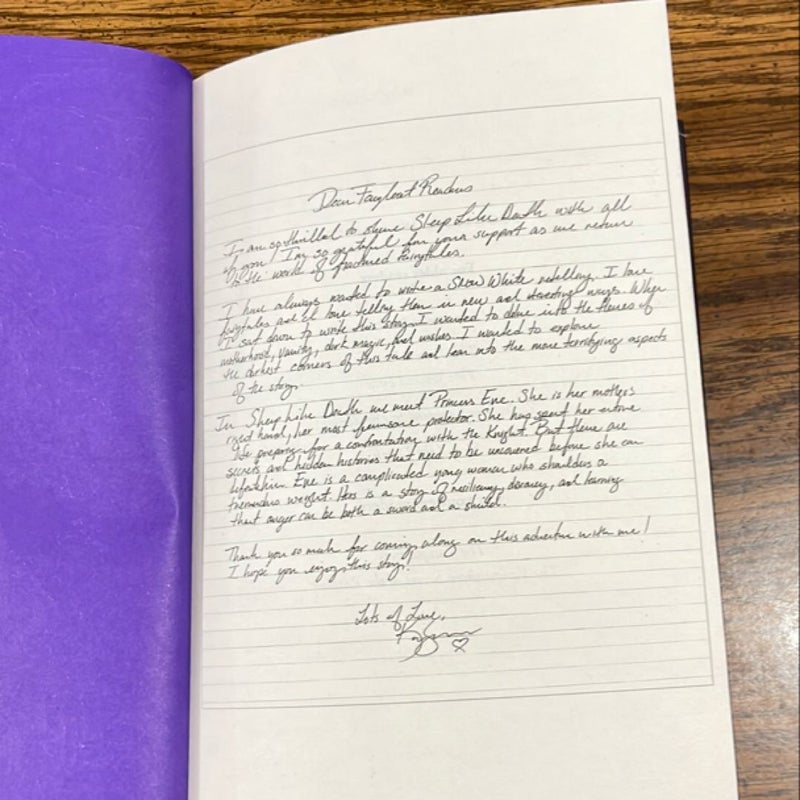 Dear Fairyloot Readers
I am so thrilled to share Sleep Like Death with all
of you! I'm so grateful for your support as we return
to the world of fractured fairytales.
I have always wanted to write a Snow White retelling. I love
fairytales and I love telling them in new and interesting ways. When
I sat down to write this story I wanted to delve into the themes of
motherhood, vanity, dark magic, and wishes. I wanted to explore
the darkest corners of this tale and lean into the more terrifying aspects
of the story.
In Sleep Like Death we meet Princess Eve. She is her mother's
right hand, her most fearsome protector. She has spent her entire
life preparing for a confrontation with the Knight. But there are
secrets and hidden histories that need to be uncovered before she can
defeat him. Eve is a complicated young woman who shoulders a
tremendous weight. Hers is a story of resiliency, discovery, and learning
that anger can be both a sword and a shield.
Thank you so much for coming along on this adventure with me!
I hope you enjoy this story!
Lots of Love,